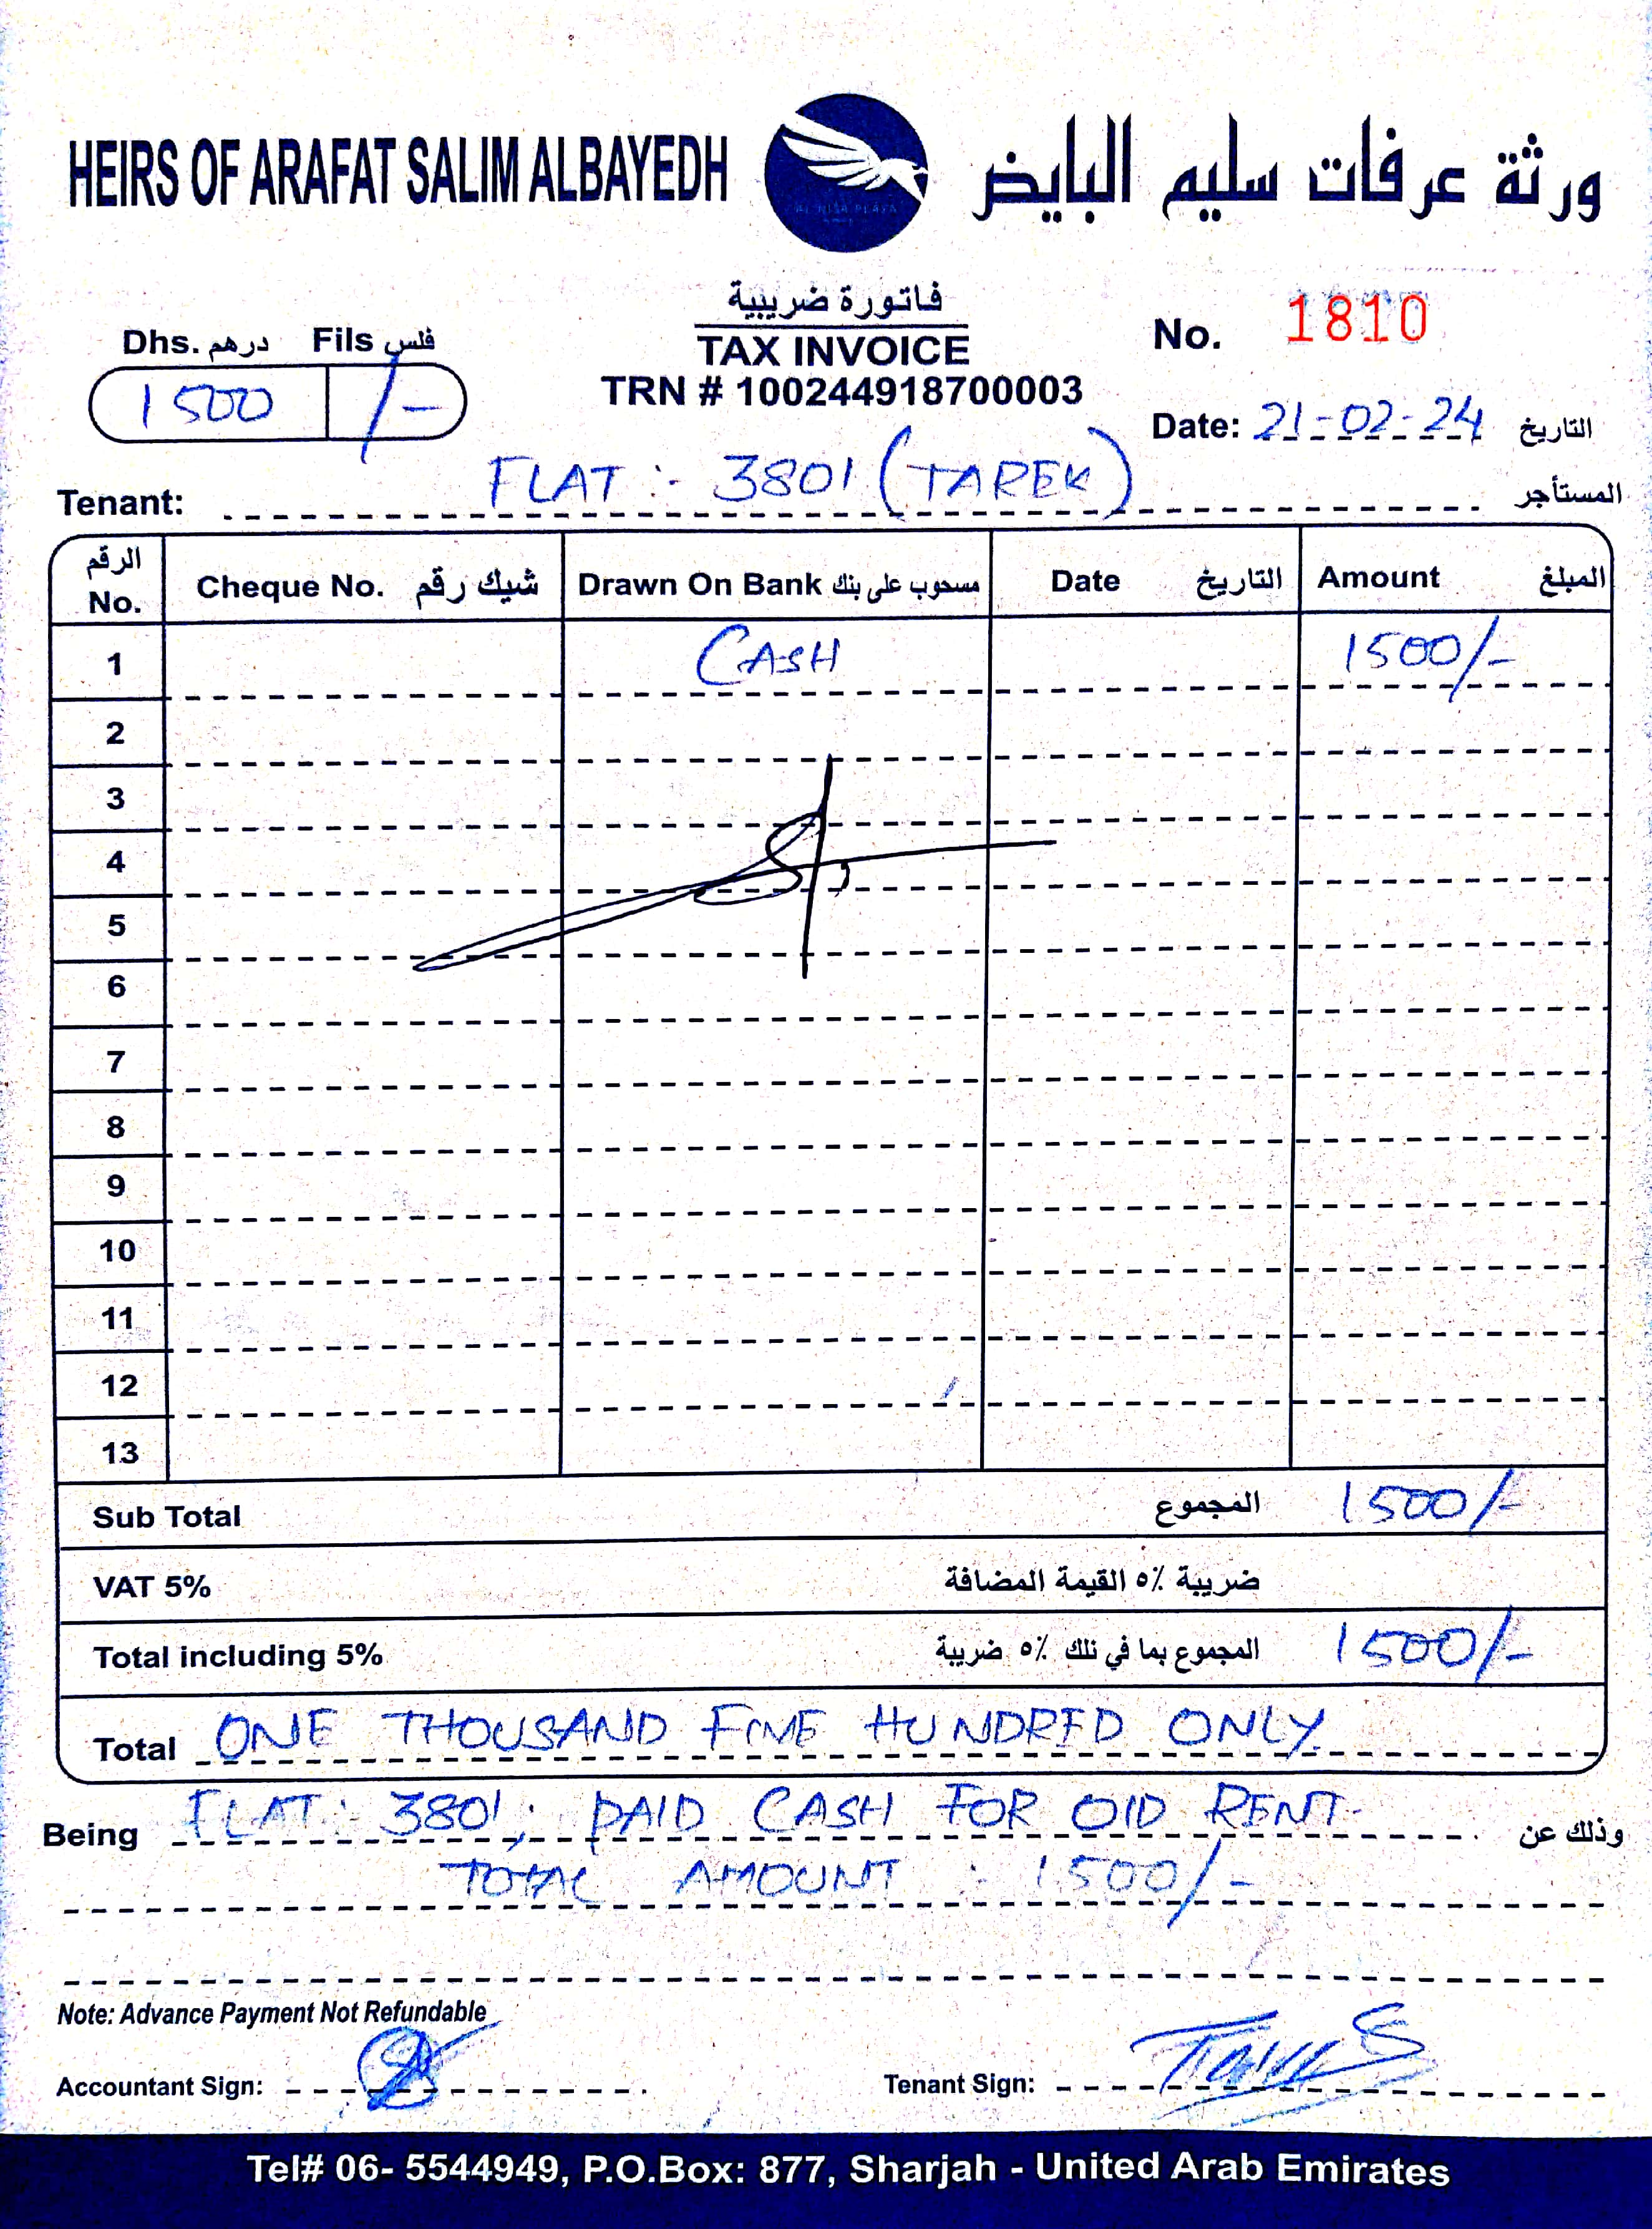 HEIRS OF ARAFAT SALIM ALBAYEDH
ورثة عرفات سليم البايض
AL NISR PLAZA
فاتورة ضريبية
TAX INVOICE
TRN # 100244918700003
Dhs. درهم Fils فلس
1500 /-
No. 1810
Date: 21-02-24 التاريخ
Tenant: FLAT :- 3801 (TAREK) المستأجر
الرقم No. Cheque No. شيك رقم Drawn On Bank مسحوب على بنك Date التاريخ Amount المبلغ
1 CASH 1500/-
2
3
4
5
6
7
8
9
10
11
12
13
Sub Total المجموع 1500/-
VAT 5% ضريبة ٥٪ القيمة المضافة
Total including 5% المجموع بما في ذلك ٥٪ ضريبة 1500/-
Total ONE THOUSAND FIVE HUNDRED ONLY.
Being FLAT: 3801; PAID CASH FOR OLD RENT- وذلك عن
TOTAL AMOUNT : 1500/-
Note: Advance Payment Not Refundable
Accountant Sign:
Tenant Sign:
Tel# 06- 5544949, P.O.Box: 877, Sharjah - United Arab Emirates